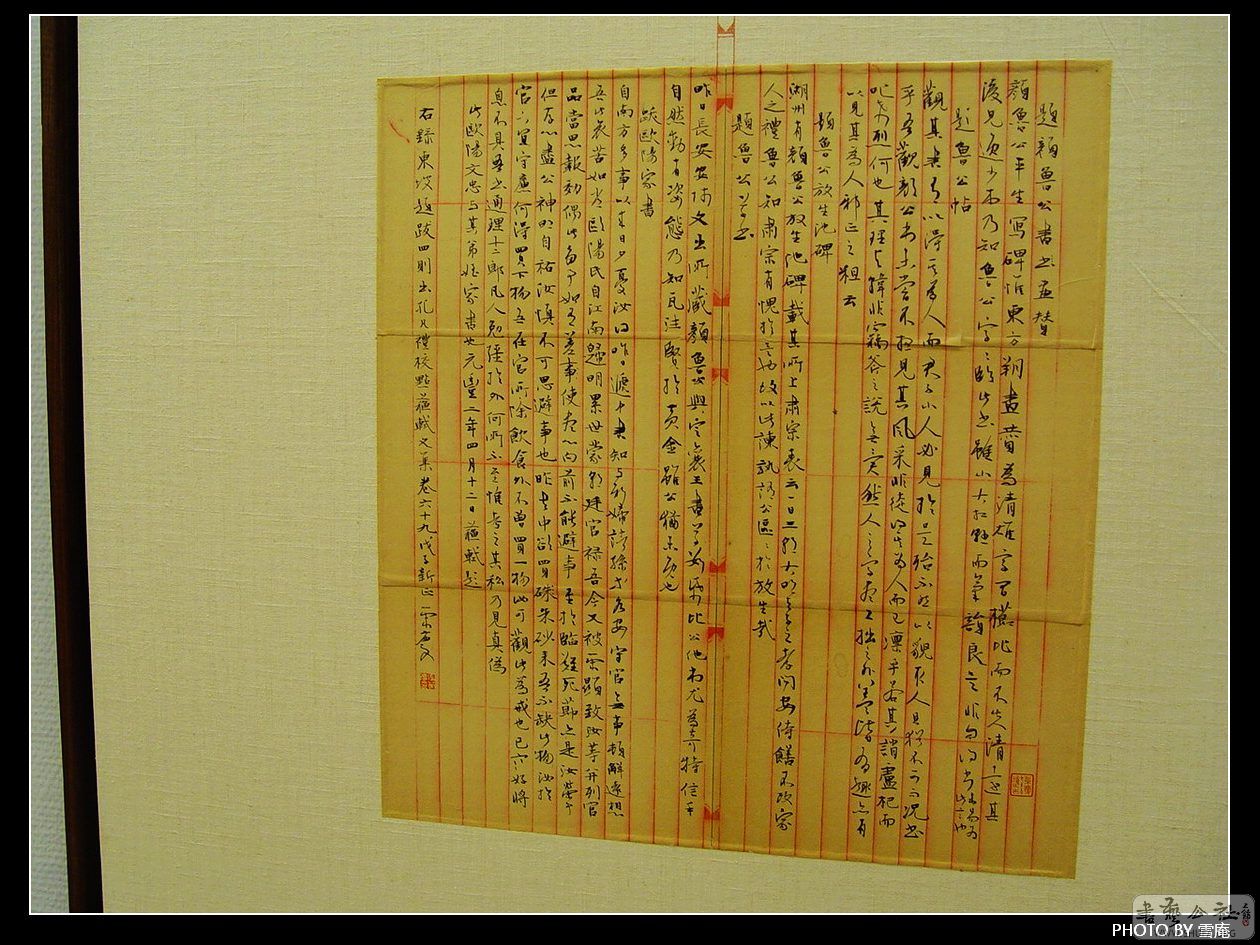 題顏魯公書畫贊
顏魯公平生寫碑惟東方朔畫贊為清雄字間櫛比而不失清遠其
後見逸少本乃知魯公字字臨此書雖小大相懸而氣韻良是非自得於書未易為
題魯公帖
觀其書有以得其為人而君子小人必見於是殆不然以貌取人且猶不可而況書
乎吾觀顏公書未嘗不想見其風采非徒得其為人而已凜乎若見其誚盧杞而
叱希烈何也其理與韓非竊斧之說無異然人之字畫工拙之外蓋皆有趣亦有
以見其為人邪正之粗云
題魯公放生池碑
湖州有顏魯公放生池碑載其所上肅宗表云一日三朝大明天子之孝問安侍膳不改家
人之禮魯公知肅宗有愧於是也故以此諫孰謂公區區於放生哉
題魯公書草
昨日長安安師文出所藏顏魯公與定襄王書草數紙比公他書尤為奇特信手
自然動有姿態乃知瓦注賢於黃金雖公猶未免也
跋歐陽家書
自南方多事以來日夕憂汝得昨日遞中書知與新婦諸孫等各安守官無事頓解遠想
吾此哀苦如常歐陽氏自江南歸明累世蒙朝廷官祿吾今又被榮顯致汝等並列官
品當思報效偶此多事如有差事使盡心向前不能避事至於臨難死節亦是汝榮事
但存心盡公神明自祐汝慎不可思避事也昨書中欲買硃朱砂來吾不缺此物汝於
官下宜守廉何得買下物吾在官所除飲食外不曾買一物此可觀此為戒也已寒好將
息不具吾書通理十二郎凡人勉強於外何所不至惟考之其私乃見真偽
此歐陽文忠與其弟姪家書也元豐二年四月十二日蘇軾題
右錄東坡題跋四則出孔凡禮校點蘇軾文集卷六十九戊子新正
書藝公社
PHOTO BY 雪庵